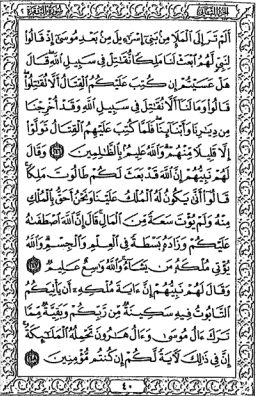 أَلَمْ تَرَ إِلَى ٱلْمَلَإِ مِنۢ بَنِىٓ إِسْرَٰٓءِيلَ مِنۢ بَعْدِ مُوسَىٰٓ إِذْ قَالُوا۟
لِنَبِىٍّ لَّهُمُ ٱبْعَثْ لَنَا مَلِكًا نُّقَٰتِلْ فِى سَبِيلِ ٱللَّهِ قَالَ
هَلْ عَسَيْتُمْ إِن كُتِبَ عَلَيْكُمُ ٱلْقِتَالُ أَلَّا تُقَٰتِلُوا۟
قَالُوا۟ وَمَا لَنَآ أَلَّا نُقَٰتِلَ فِى سَبِيلِ ٱللَّهِ وَقَدْ أُخْرِجْنَا
مِن دِيَٰرِنَا وَأَبْنَآئِنَا فَلَمَّا كُتِبَ عَلَيْهِمُ ٱلْقِتَالُ تَوَلَّوْا۟
إِلَّا قَلِيلًا مِّنْهُمْ وَٱللَّهُ عَلِيمٌۢ بِٱلظَّٰلِمِينَ ٢٤٦ وَقَالَ
لَهُمْ نَبِيُّهُمْ إِنَّ ٱللَّهَ قَدْ بَعَثَ لَكُمْ طَالُوتَ مَلِكًا
قَالُوٓا۟ أَنَّىٰ يَكُونُ لَهُ ٱلْمُلْكُ عَلَيْنَا وَنَحْنُ أَحَقُّ بِٱلْمُلْكِ
مِنْهُ وَلَمْ يُؤْتَ سَعَةً مِّنَ ٱلْمَالِ قَالَ إِنَّ ٱللَّهَ ٱصْطَفَىٰهُ
عَلَيْكُمْ وَزَادَهُۥ بَسْطَةً فِى ٱلْعِلْمِ وَٱلْجِسْمِ وَٱللَّهُ
يُؤْتِى مُلْكَهُۥ مَن يَشَآءُ وَٱللَّهُ وَٰسِعٌ عَلِيمٌ ٢٤٧
وَقَالَ لَهُمْ نَبِيُّهُمْ إِنَّ ءَايَةَ مُلْكِهِۦٓ أَن يَأْتِيَكُمُ
ٱلتَّابُوتُ فِيهِ سَكِينَةٌ مِّن رَّبِّكُمْ وَبَقِيَّةٌ مِّمَّا
تَرَكَ ءَالُ مُوسَىٰ وَءَالُ هَٰرُونَ تَحْمِلُهُ ٱلْمَلَٰٓئِكَةُ
إِنَّ فِى ذَٰلِكَ لَءَايَةً لَّكُمْ إِن كُنتُم مُّؤْمِنِينَ ٢٤٨
٤٠